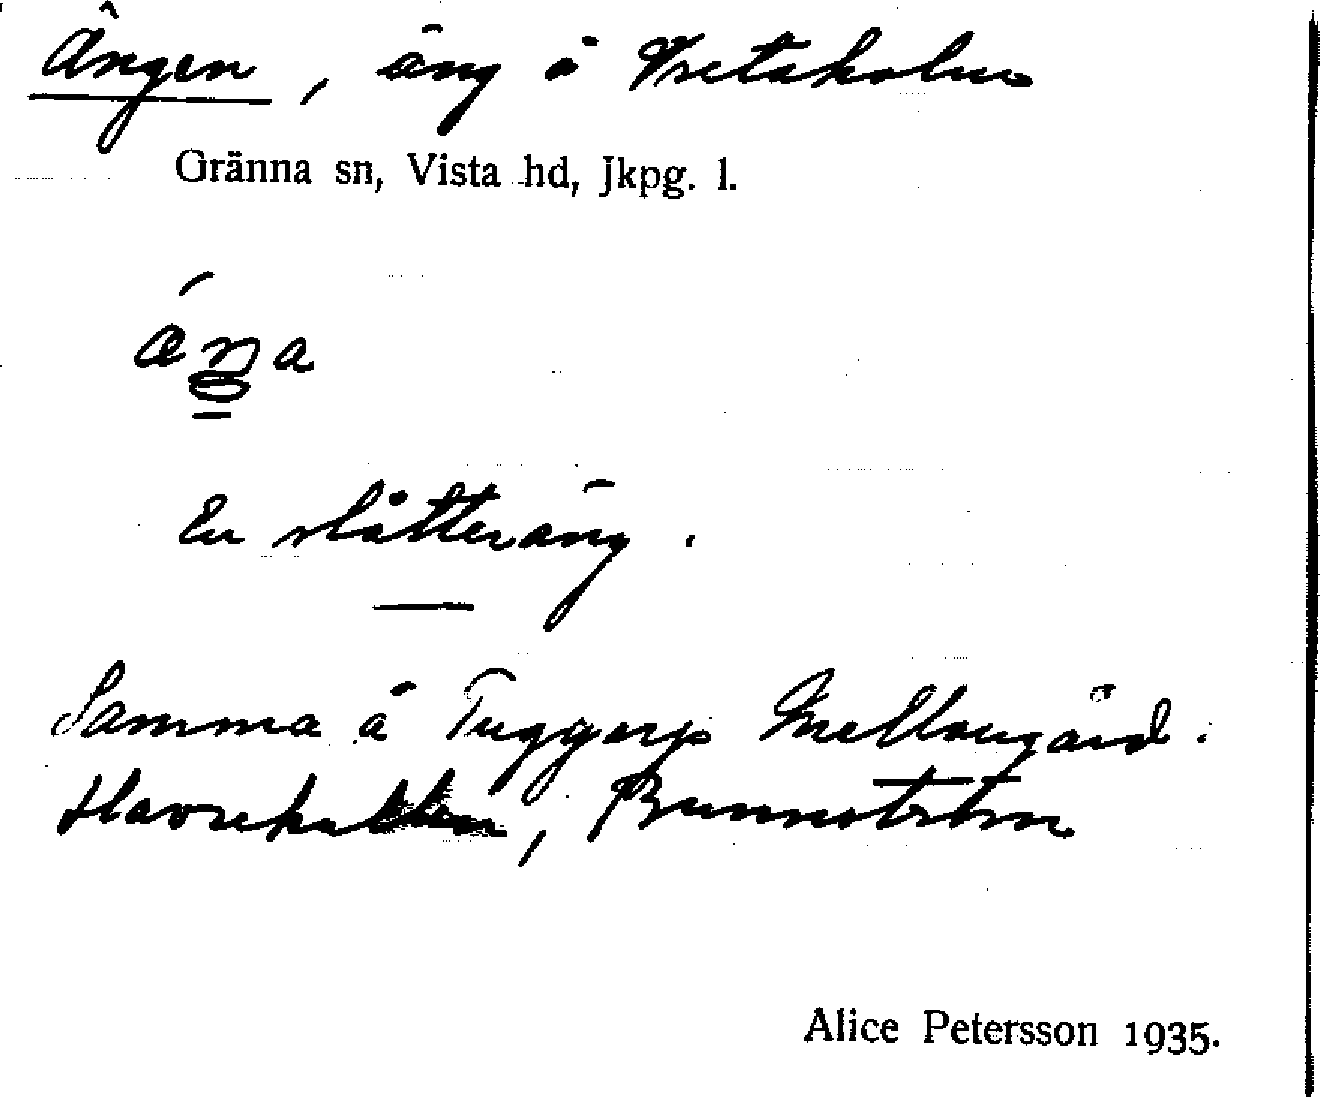 Ängen, äng å Vretaholm
Gränna sn, Vista hd, Jkpg. l.
En slåtteräng.
Samma å Tuggarp Mellangård.
Havrekullen, Bunnström
Alice Petersson 1935.